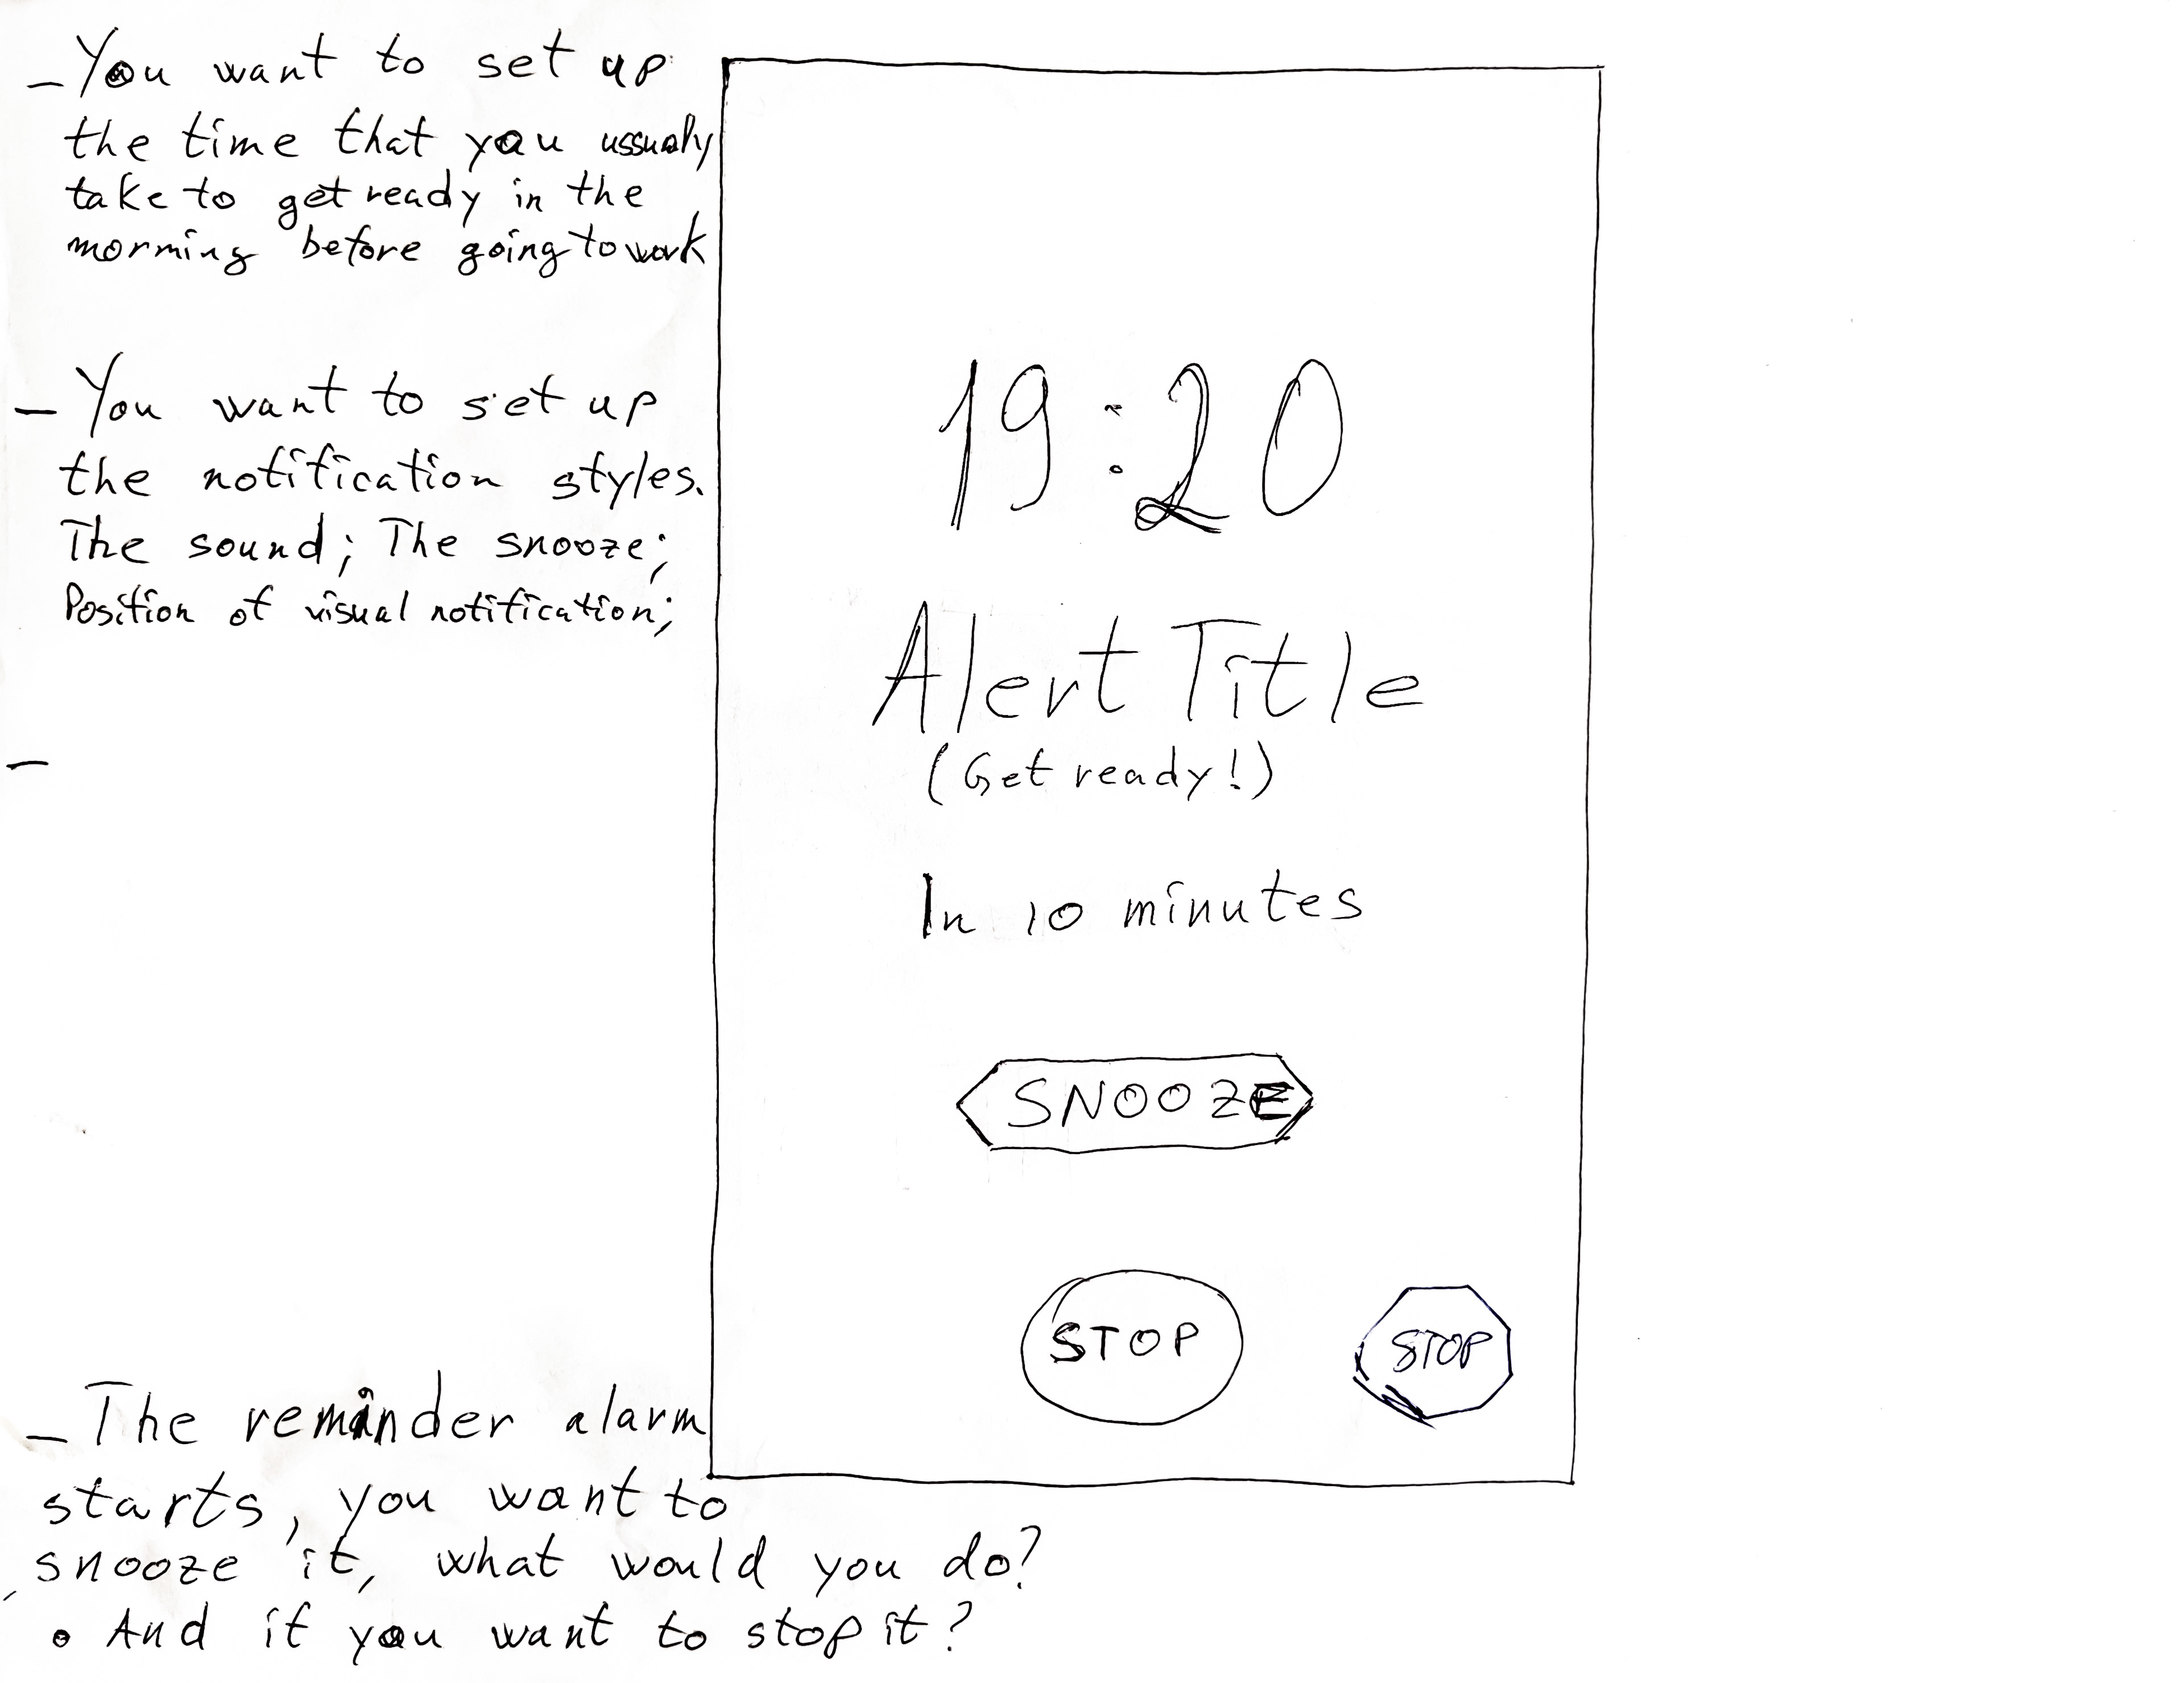 - You want to set up
the time that you ussualy
take to get ready in the
morming before going to work
- You want to set up
the notification styles.
The sound; The snooze;
Position of visual notification;
-
19:20
Alert Title
(Get ready!)
In 10 minutes
SNOOZE
STOP
STOP
- The reminder alarm
starts, you want to
snooze it, what would you do?
• And if you want to stop it?